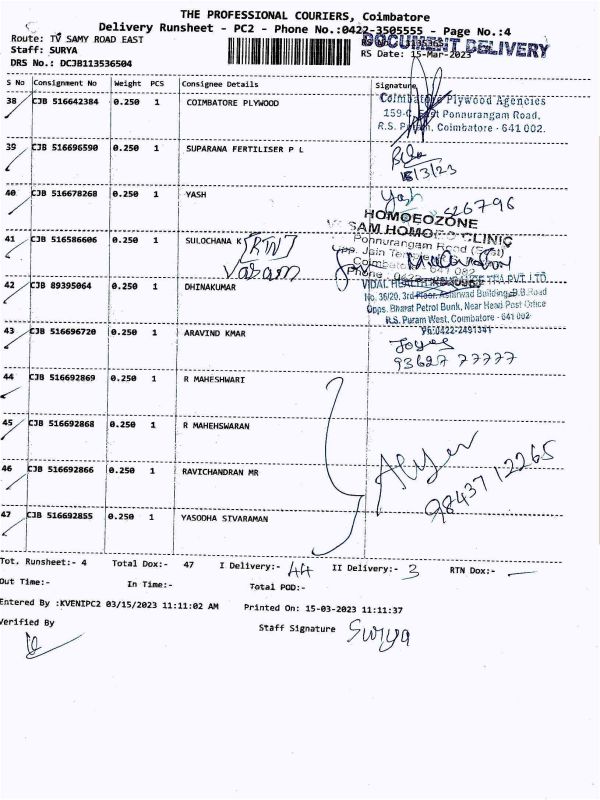 THE PROFESSIONAL COURIERS, Coimbatore
Delivery Runsheet - PC2 - Phone No.:0422-3505555 - Page No.:4
Route: TV SAMY ROAD EAST
DOCUMENT DELIVERY
Staff: SURYA
RS Date: 15-Mar-2023
DRS No.: DCJB113536504
S No Consignment No Weight PCS Consignee Details Signature
38 CJB 516642384 0.250 1 COIMBATORE PLYWOOD
Coimbatore Plywood Agencies
159-C, East Ponnurangam Road,
R.S. Puram, Coimbatore - 641 002.
39 CJB 516696590 0.250 1 SUPARANA FERTILISER P L
15/3/23
40 CJB 516678268 0.250 1 YASH
Yash
526796
HOMOEOZONE
SAM HOMOEO CLINIC
41 CJB 516586606 0.250 1 SULOCHANA K
RTN
Ponnurangam Road (East)
Opp. Jain Temple
Coimbatore - 641 002
Phone
42 CJB 89395064 0.250 1 DHINAKUMAR
VIDAL HEALTH INSURANCE TPA PVT. LTD
No. 36/20, 3rd Floor, Ashirwad Building, D.B.Road
Opps. Bharat Petrol Bunk, Near Head Post Office
R.S. Puram West, Coimbatore - 641 002
Ph:0422-2491341
43 CJB 516696720 0.250 1 ARAVIND KMAR
93627 77777
44 CJB 516692869 0.250 1 R MAHESHWARI
45 CJB 516692868 0.250 1 R MAHEHSWARAN
46 CJB 516692866 0.250 1 RAVICHANDRAN MR
9843712265
47 CJB 516692855 0.250 1 YASODHA SIVARAMAN
Tot. Runsheet:- 4 Total Dox:- 47 I Delivery:- 44 II Delivery:- 3 RTN Dox:- —
Out Time:- In Time:- Total POD:-
Entered By :KVENIPC2 03/15/2023 11:11:02 AM Printed On: 15-03-2023 11:11:37
Verified By
Staff Signature Surya